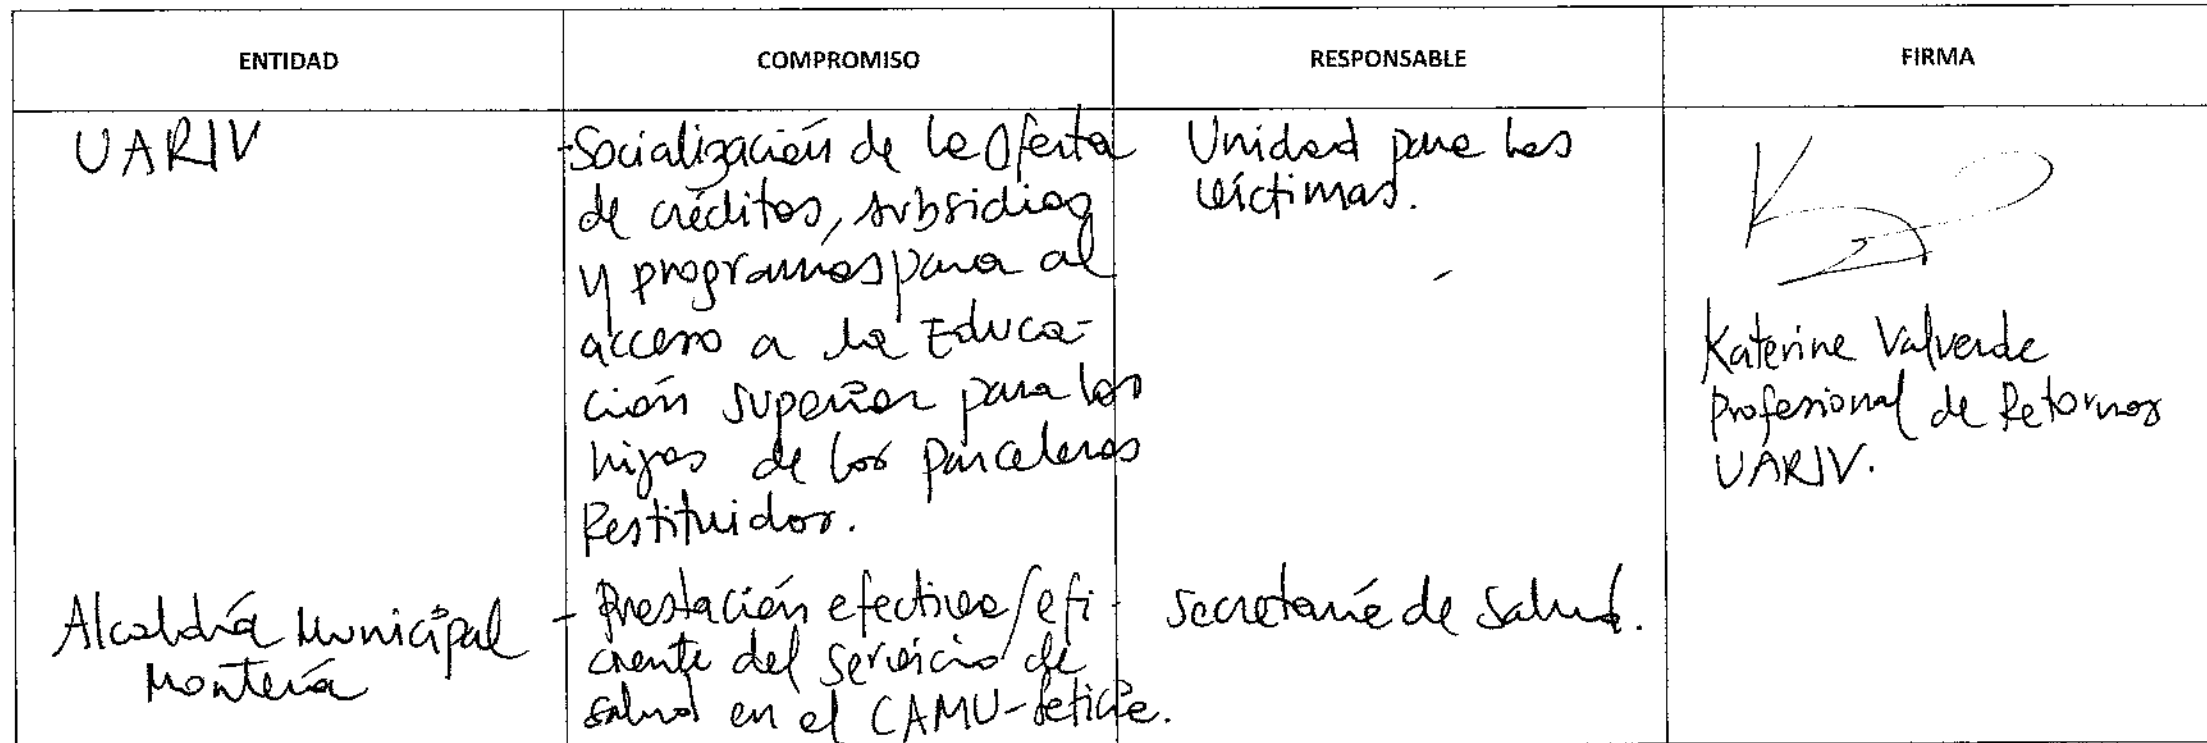 ENTIDAD COMPROMISO RESPONSABLE FIRMA
UARIV
-Socialización de la Oferta
de créditos, subsidios
y programas para al
acceso a la Educa-
ción superior para los
hijos de los parceleros
Restituidos.
Unidad para las
víctimas.
Katerine Valverde
Profesional de Retornos
UARIV.
Alcaldía Municipal
Montería
- Prestación efectiva/efi
ciente del servicio de
salud en el CAMU-Leticia.
Secretaría de Salud.